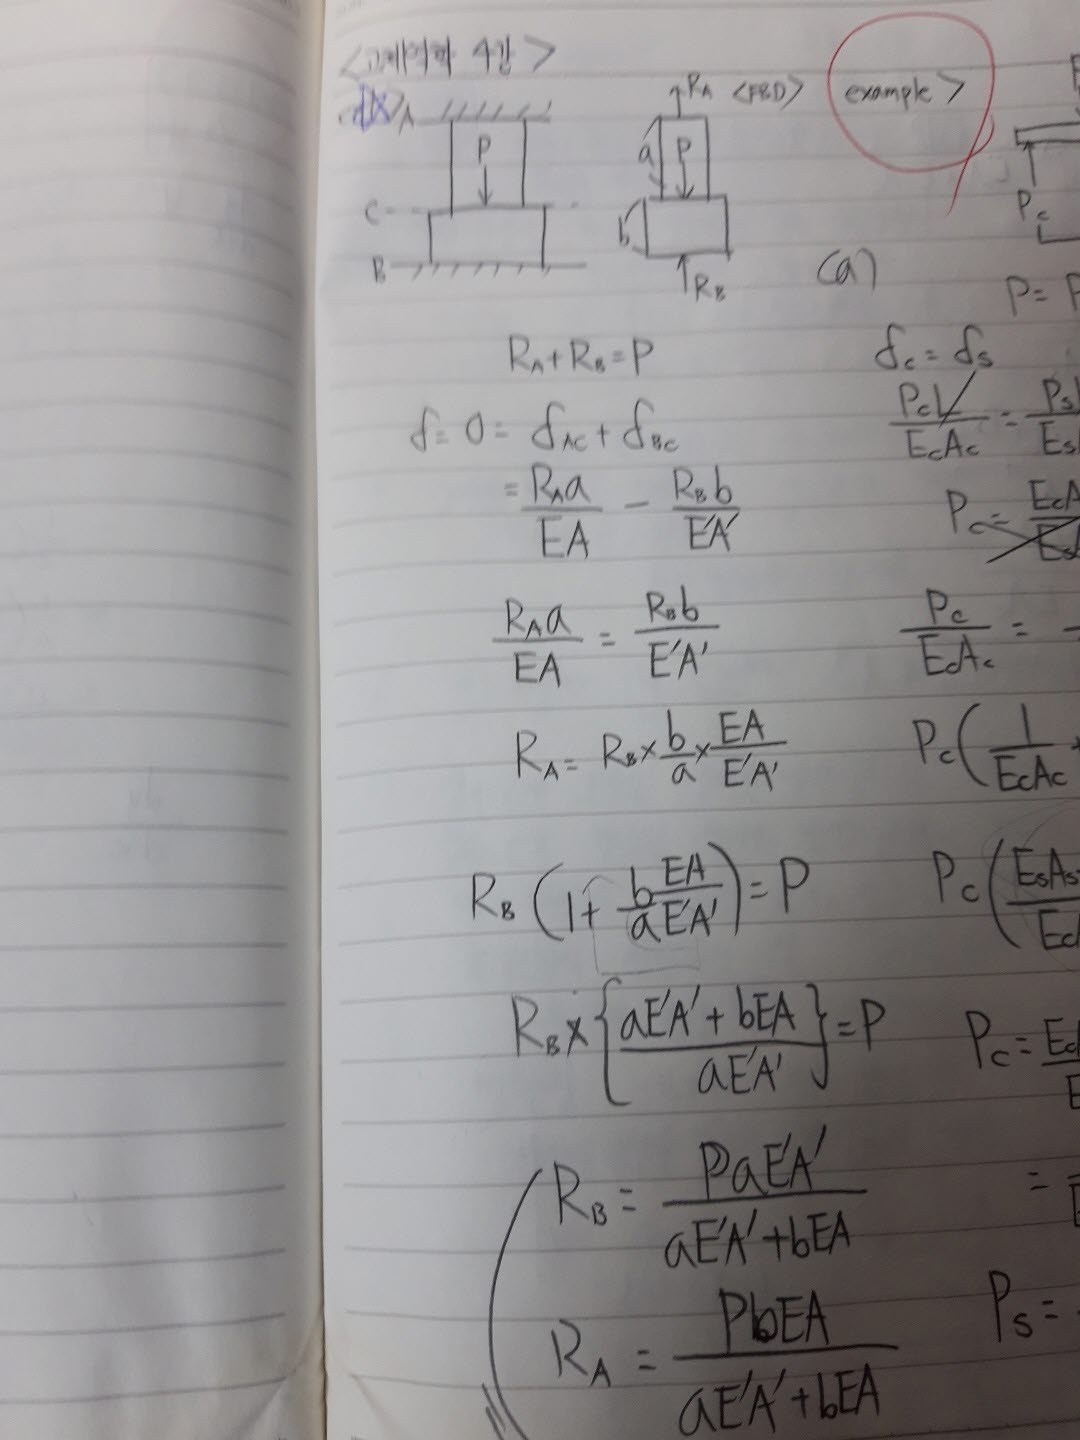 <고체역학 4강>
ex> A
P
C
B
R_A <FBD>
a P
b
R_B
R_A + R_B = P
δ = 0 = δ_AC + δ_BC
= R_A a / EA − R_B b / E'A'
R_A a / EA = R_B b / E'A'
R_A = R_B × b/a × EA / E'A'
R_B (1 + b/a EA / E'A') = P
R_B × { aE'A' + bEA / aE'A' } = P
R_B = PaE'A' / aE'A' + bEA
R_A = PbEA / aE'A' + bEA
example>
P_c
(a)
P =
δ_c = δ_s
P_c L / E_c A_c = P_s / E_s
P_c / E_c A_c =
P_c ( 1 / E_c A_c +
P_c ( E_s A_s
P_c =
=
P_s =